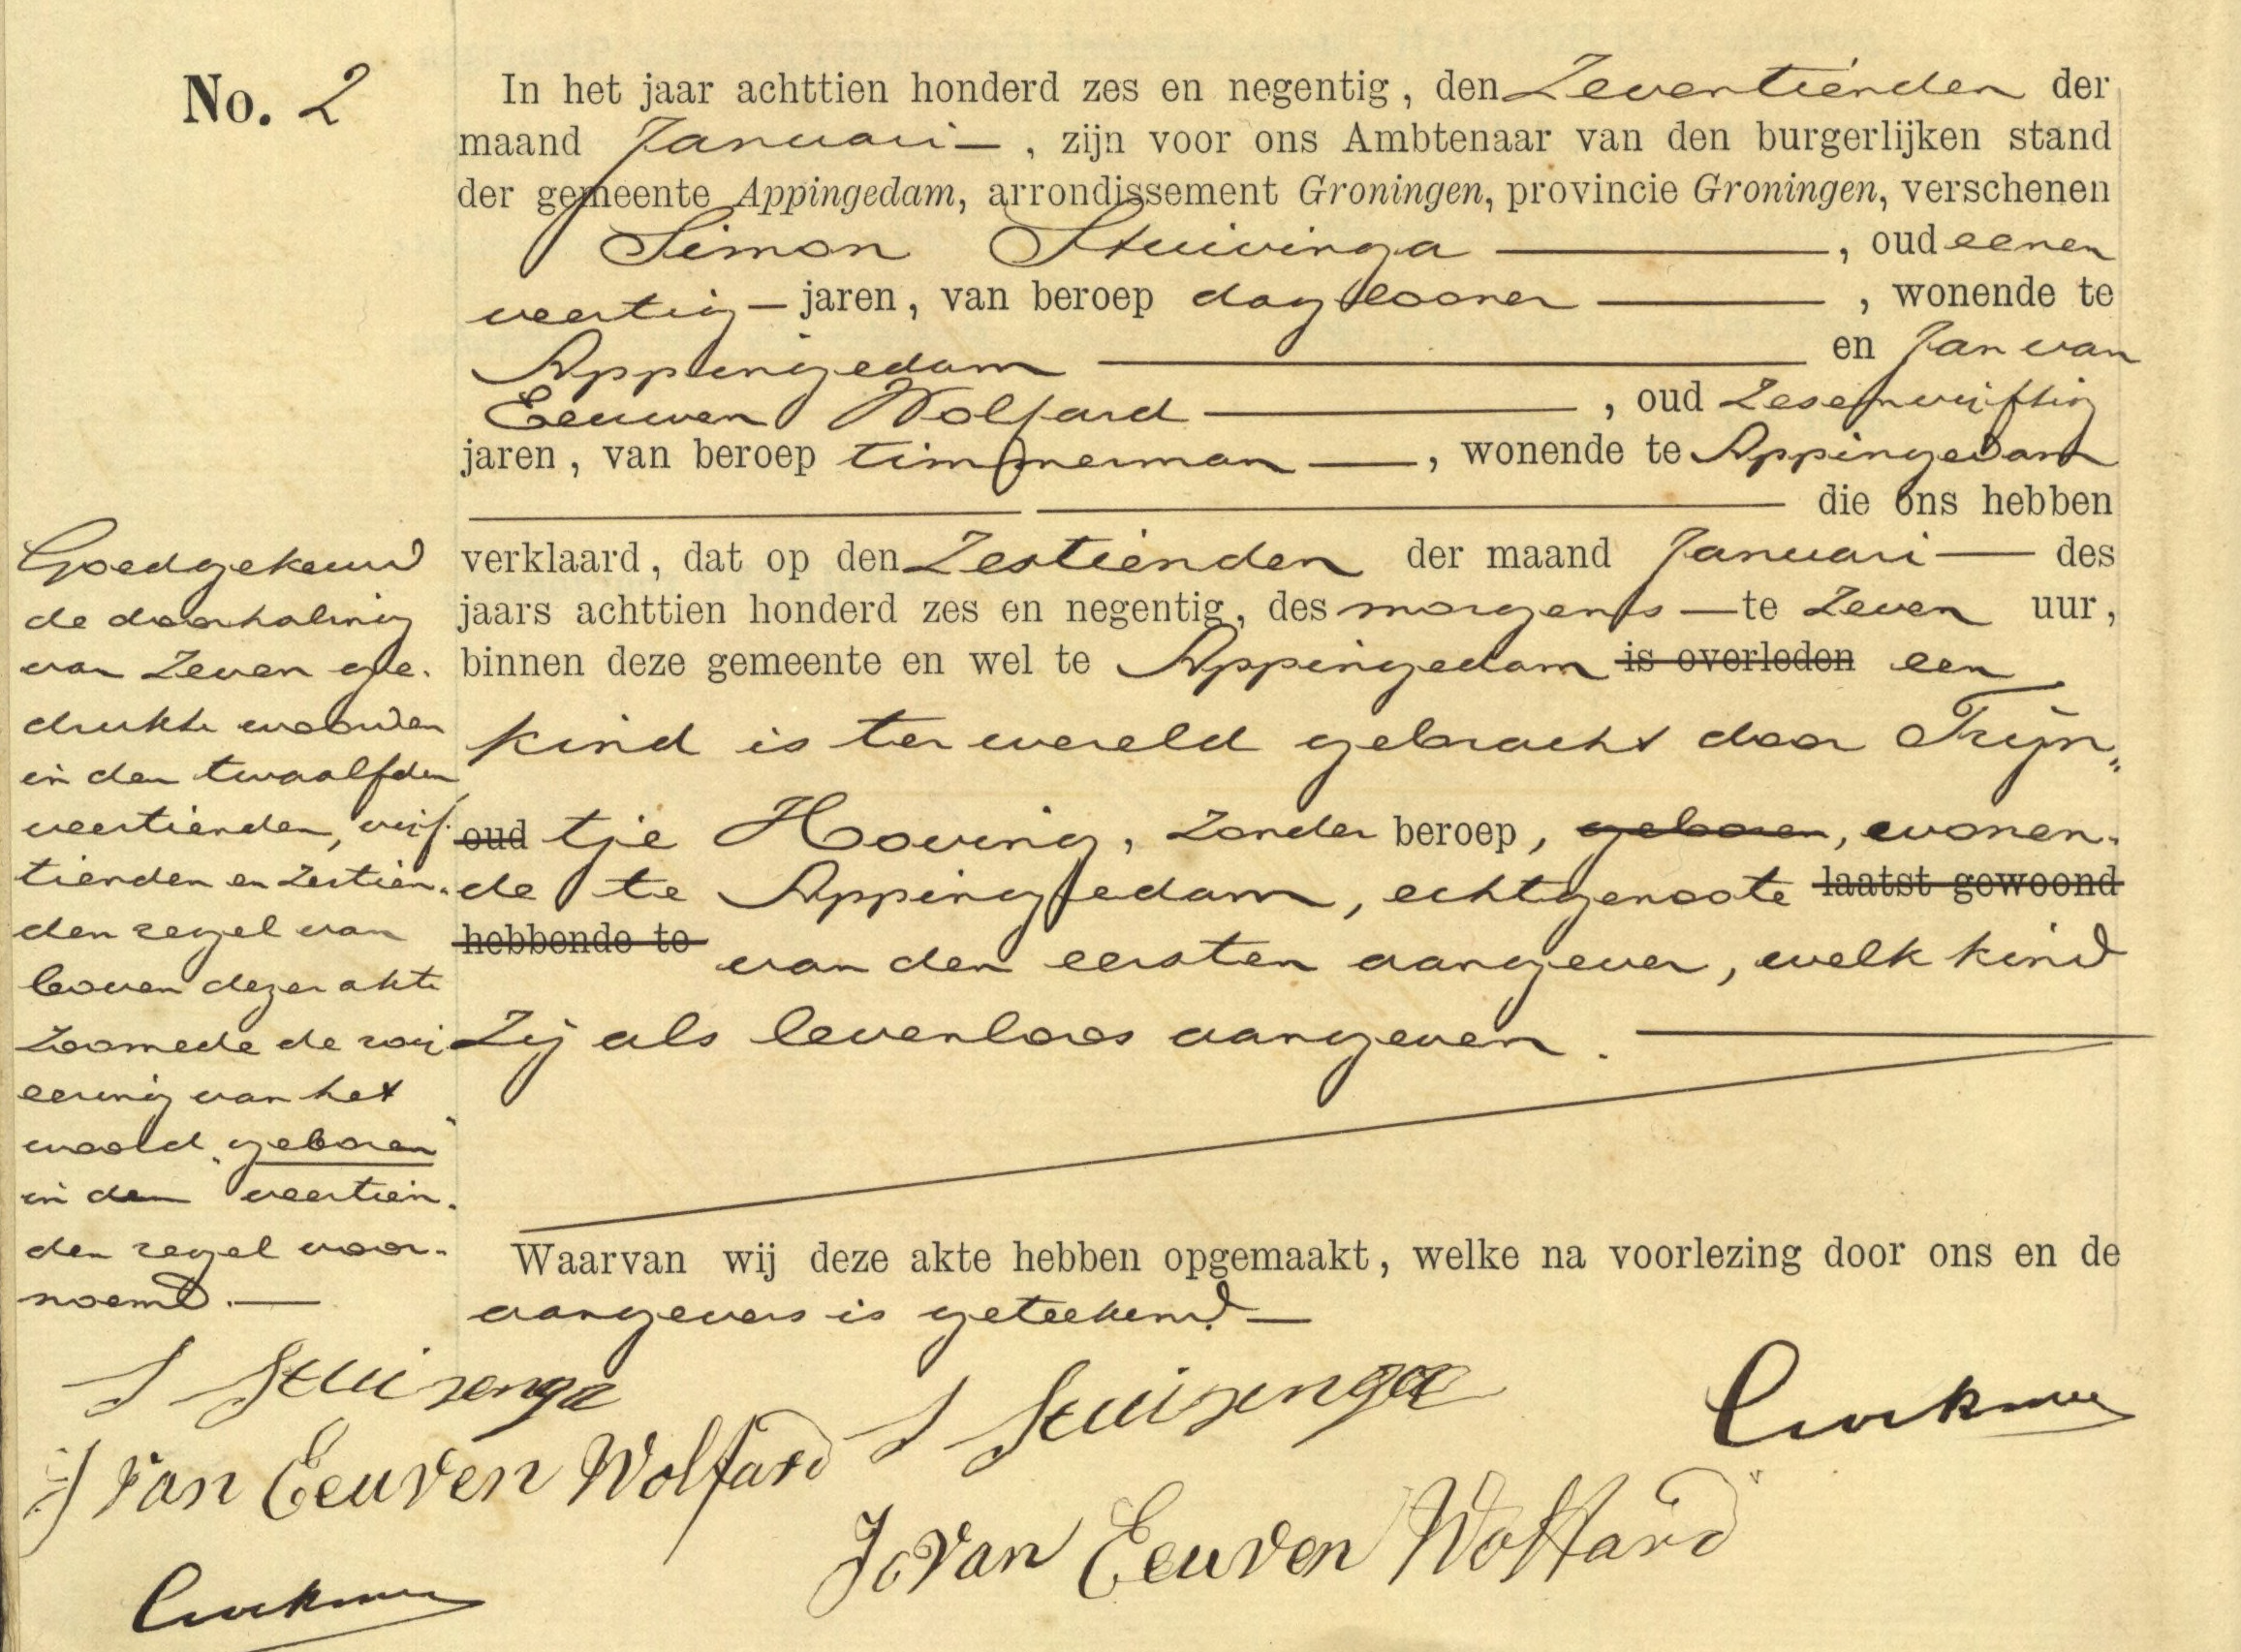 No. 2
In het jaar achttien honderd zes en negentig, den Zeventienden der
maand Januari — , zijn voor ons Ambtenaar van den burgerlijken stand
der gemeente Appingedam, arrondissement Groningen, provincie Groningen, verschenen
Simon Stuivinga ——, oud eenen
veertig — jaren, van beroep daglooner —— , wonende te
Appingedam —— en Jan van
Eeuwen Wolfard ——, oud Zesenvijftig
jaren, van beroep timmerman ——, wonende te Appingedam
—— die ons hebben
verklaard, dat op den Zestienden der maand Januari —— des
jaars achttien honderd zes en negentig, des morgens — te Zeven uur,
binnen deze gemeente en wel te Appingedam is overleden een
kind is ter wereld gebracht door Trijn„
oud tje Hoving, zonder beroep, geboren, wonen-
de te Appingedam, echtgenoote laatst gewoond
hebbende te van den eersten aangever, welk kind
Zij als levenloos aangeven. ——
Waarvan wij deze akte hebben opgemaakt, welke na voorlezing door ons en de
aangevers is geteekend. —
Goedgekeurd
de doorhaling
van Zeven ge-
drukte woorden
in den twaalfden
veertienden, vijf-
tienden en Zestien-
den regel van
boven dezer akte
Zoomede de roij-
eering van het
woord „geboren”
in den veertien-
den regel voor-
noemd. —
S Stuivenga
J van Eeuven Wolfard
S Stuivenga
J. van Eeuven Wolfard